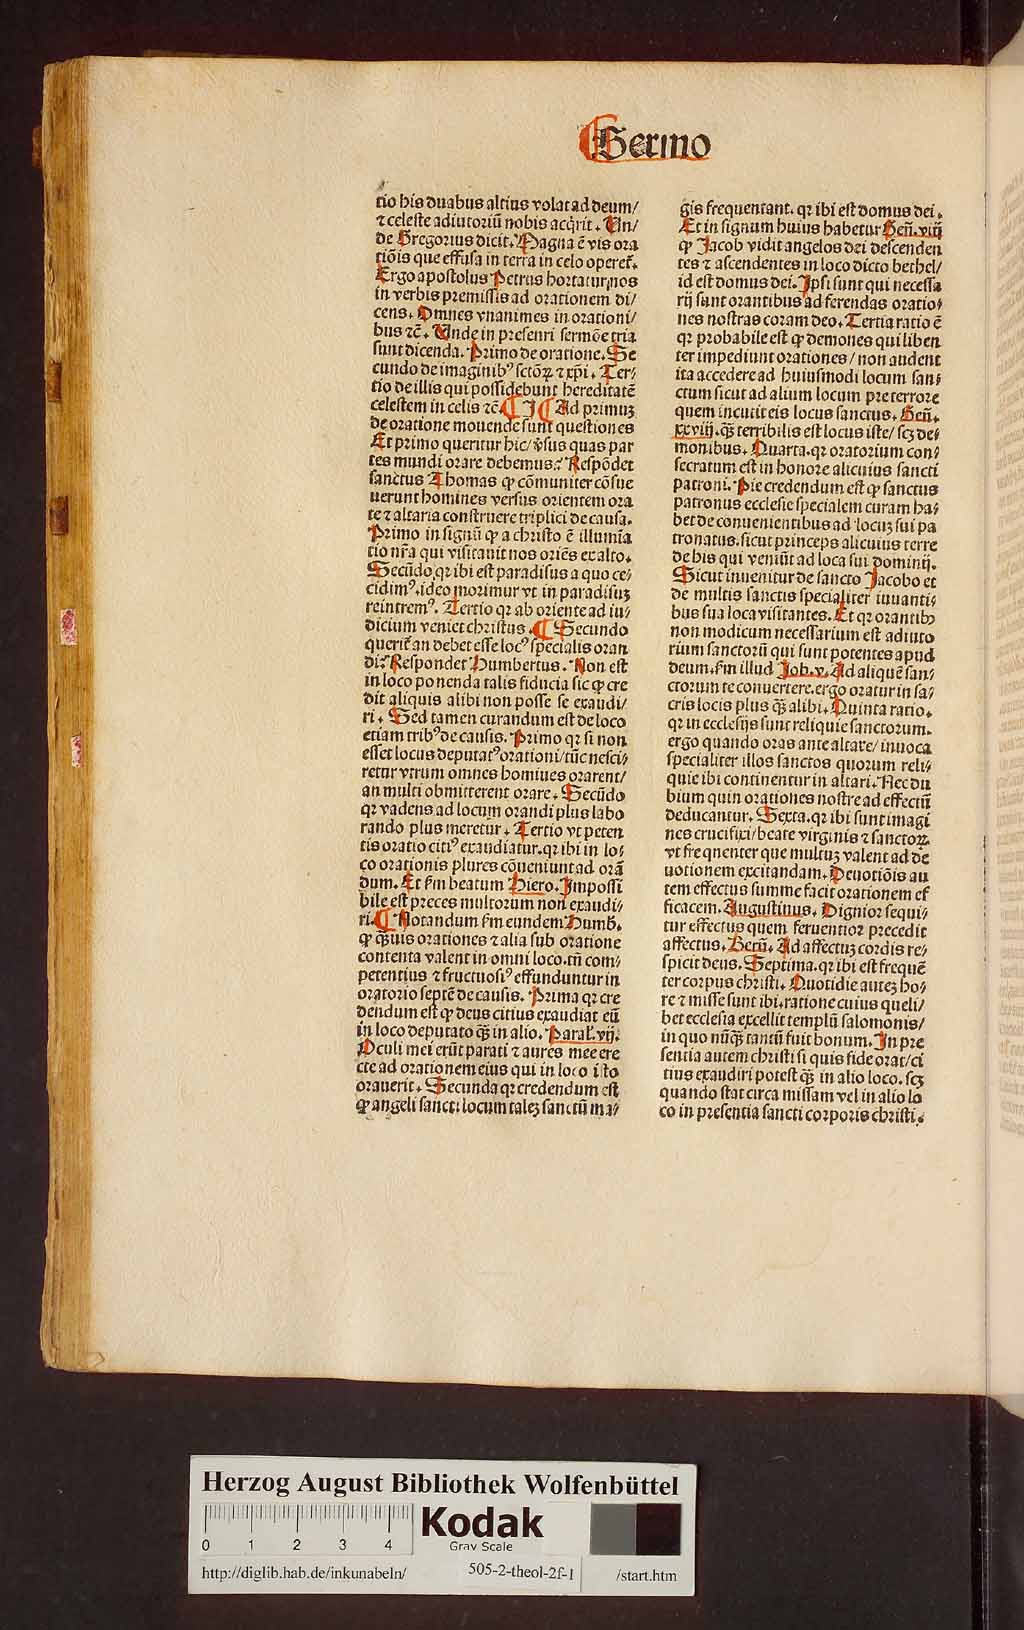 Sermo
tio his duabus altius volat ad deum/
⁊ celeste adiutoriũ nobis acq̃rit. Vn/
de Gregorius dicit. Magna ē vis ora
tiōis que effusa in terra in celo operet̃.
Ergo apostolus Petrus hortatur nos
in verbis premissis ad orationem di/
cens. Omnes vnanimes in orationi/
bus ⁊c̃. Vnde in presenri sermōe tria
sunt dicenda. Primo de oratione. Se
cundo de imaginibꝰ sctōꝝ ⁊ xp̄i. Ter/
tio de illis qui possidebunt hereditatē
celestem in celis ⁊c̃. ¶ I ¶ Ad primuꝫ
de oratione mouende sunt questiones
Et primo queritur hic/ v̾sus quas par
tes mundi orare debemus? Respōdet
sanctus Thomas ꝙ cōmuniter cōsue
uerunt homines versus orientem ora
te ⁊ altaria construere triplici de causa.
Primo in signū ꝙ a christo ē illumia
tio nr̄a qui visitauit nos oriēs ex alto.
Secūdo qꝛ ibi est paradisus a quo ce/
cidimꝰ. ideo morimur vt in paradisuꝫ
reintremꝰ. Tertio qꝛ ab oriente ad iu/
dicium veniet christus. ¶ Secundo
querit̃ an debet esse locꝰ specialis oran
di? Respondet Humbertus. Non est
in loco ponenda talis fiducia sic ꝙ cre
dit aliquis alibi non posse se exaudi/
ri. Sed tamen curandum est de loco
etiam tribꝰ de causis. Primo qꝛ si non
esset locus deputatꝰ orationi/ tūc nesci/
retur vtrum omnes homiues orarent/
an multi obmitterent orare. Secūdo
qꝛ vadens ad locum orandi plus labo
rando plus meretur. Tertio vt peten
tis oratio citiꝰ exaudiatur. qꝛ ibi in lo/
co orationis plures cōueniunt ad orā
dum. Et ẜm beatum Hiero. Impossi
bile est preces multorum non exaudi/
ri. ¶ Notandum ẜm eundem Humb.
ꝙ q̄ꝫuis orationes ⁊ alia sub oratione
contenta valent in omni loco. tn̄ com/
petentius ⁊ fructuosiꝰ effunduntur in
oratorio septē de causis. Prima qꝛ cre
dendum est ꝙ deus citius exaudiat eū
in loco deputato q̄ꝫ in alio. Paral̓. vij.
Oculi mei erūt parati ⁊ aures mee ere
cte ad orationem eius qui in loco i sto
orauerit. Secunda qꝛ credendum est
ꝙ angeli sancti locum taleꝫ sanctū ma/
gis frequentant. qꝛ ibi est domus dei.
Et in signum huius habetur Geñ. viij
ꝙ Jacob vidit angelos dei descenden
tes ⁊ ascendentes in loco dicto bethel/
id est domus dei. Ipsi sunt qui necessa
rij sunt orantibus ad ferendas oratio/
nes nostras coram deo. Tertia ratio ē
qꝛ probabile est ꝙ demones qui liben
ter impediunt orationes/ non audent
ita accedere ad huiusmodi locum san/
ctum sicut ad alium locum pre terrore
quem incutit eis locus sanctus. Geñ.
xxviij. q̄ꝫ terribilis est locus iste/ scꝫ de/
monibus. Quarta. qꝛ oratorium con/
secratum est in honore alicuius sancti
patroni. Pie credendum est ꝙ sanctus
patronus ecclesie specialem curam ha/
bet de conuenientibus ad locuꝫ sui pa
tronatus. sicut princeps alicuius terre
de his qui veniūt ad loca sui dominij.
Sicut inuenitur de sancto Jacobo et
de multis sanctis specialiter iuuanti/
bus sua loca visitantes. Et qꝛ orantibꝫ
non modicum necessarium est adiuto
rium sanctorū qui sunt potentes apud
deum. ẜm illud Job. v. Ad aliquē san/
ctorum te conuertere. ergo oratur in sa/
cris locis plus q̄ꝫ alibi. Quinta ratio.
qꝛ in ecclesijs sunt reliquie sanctorum.
ergo quando oras ante altare/ inuoca
specialiter illos sanctos quorum reli/
quie ibi continentur in altari. Nec du
bium quin orationes nostre ad effectū
deducantur. Sexta. qꝛ ibi sunt imagi
nes crucifixi/ beate virginis ⁊ sanctoꝝ.
vt fre qnenter que multuꝫ valent ad de
uotionem excitandam. Deuotiōis au
tem effectus summe facit orationem ef
ficacem. Augustinus. Dignior sequi/
tur effectus quem feruentior precedit
affectus. Berñ. Ad affectuꝫ cordis re/
spicit deus. Septima. qꝛ ibi est frequē
ter corpus christi. Quotidie auteꝫ ho/
re ⁊ misse sunt ibi. ratione cuius queli/
bet ecclesia excellit templū salomonis/
in quo nūq̄ꝫ tantū fuit bonum. In pre
sentia autem christi si quis fide orat/ ci
tius exaudiri potest q̄ꝫ in alio loco. scꝫ
quando stat circa missam vel in alio lo
co in presentia sancti corporis christi.
Herzog August Bibliothek Wolfenbüttel
0 1 2 3 4
Kodak
Gray Scale
http://diglib.hab.de/inkunabeln/
505-2-theol-2f-1
/start.htm